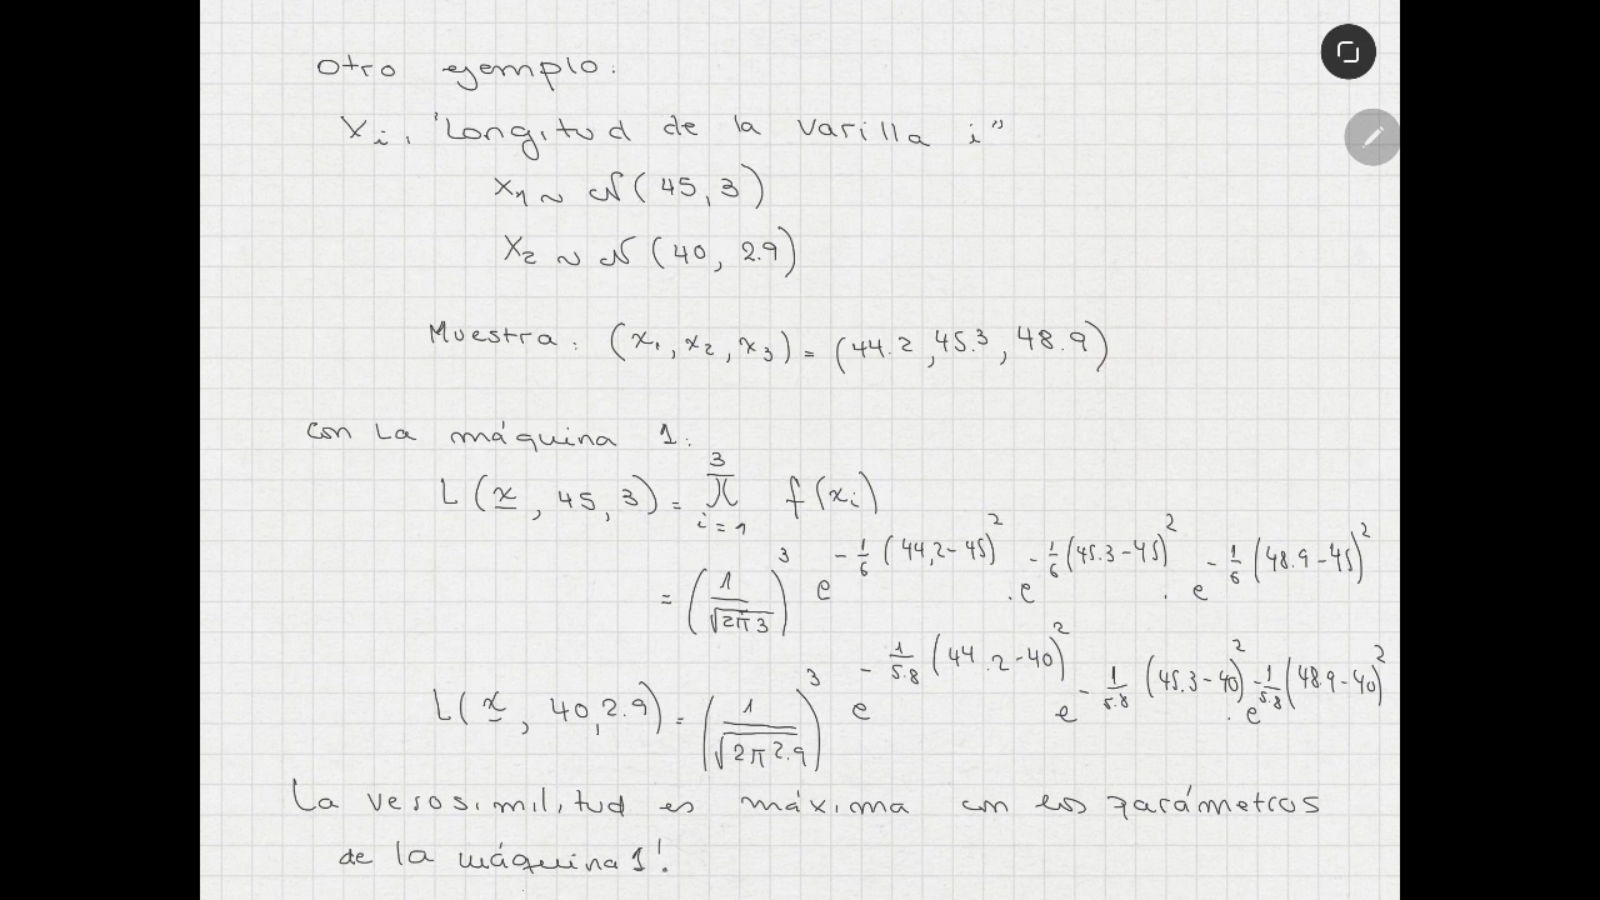 Otro ejemplo:
Xi. "Longitud de la varilla i"
X1 ~ N(45, 3)
X2 ~ N(40, 2.9)
Muestra: (x1, x2, x3) = (44.2, 45.3, 48.9)
con la máquina 1:
L(x, 45, 3) = ∏_{i=1}^{3} f(xi)
= (1/√(2π3))^3 e^{-1/6 (44,2-45)^2} . e^{-1/6 (45.3-45)^2} . e^{-1/6 (48.9-45)^2}
L(x, 40, 2.9) = (1/√(2π2.9))^3 e^{-1/5.8 (44.2-40)^2} e^{-1/5.8 (45.3-40)^2} . e^{-1/5.8 (48.9-40)^2}
La verosimilitud es máxima con los parámetros
de la máquina 1!